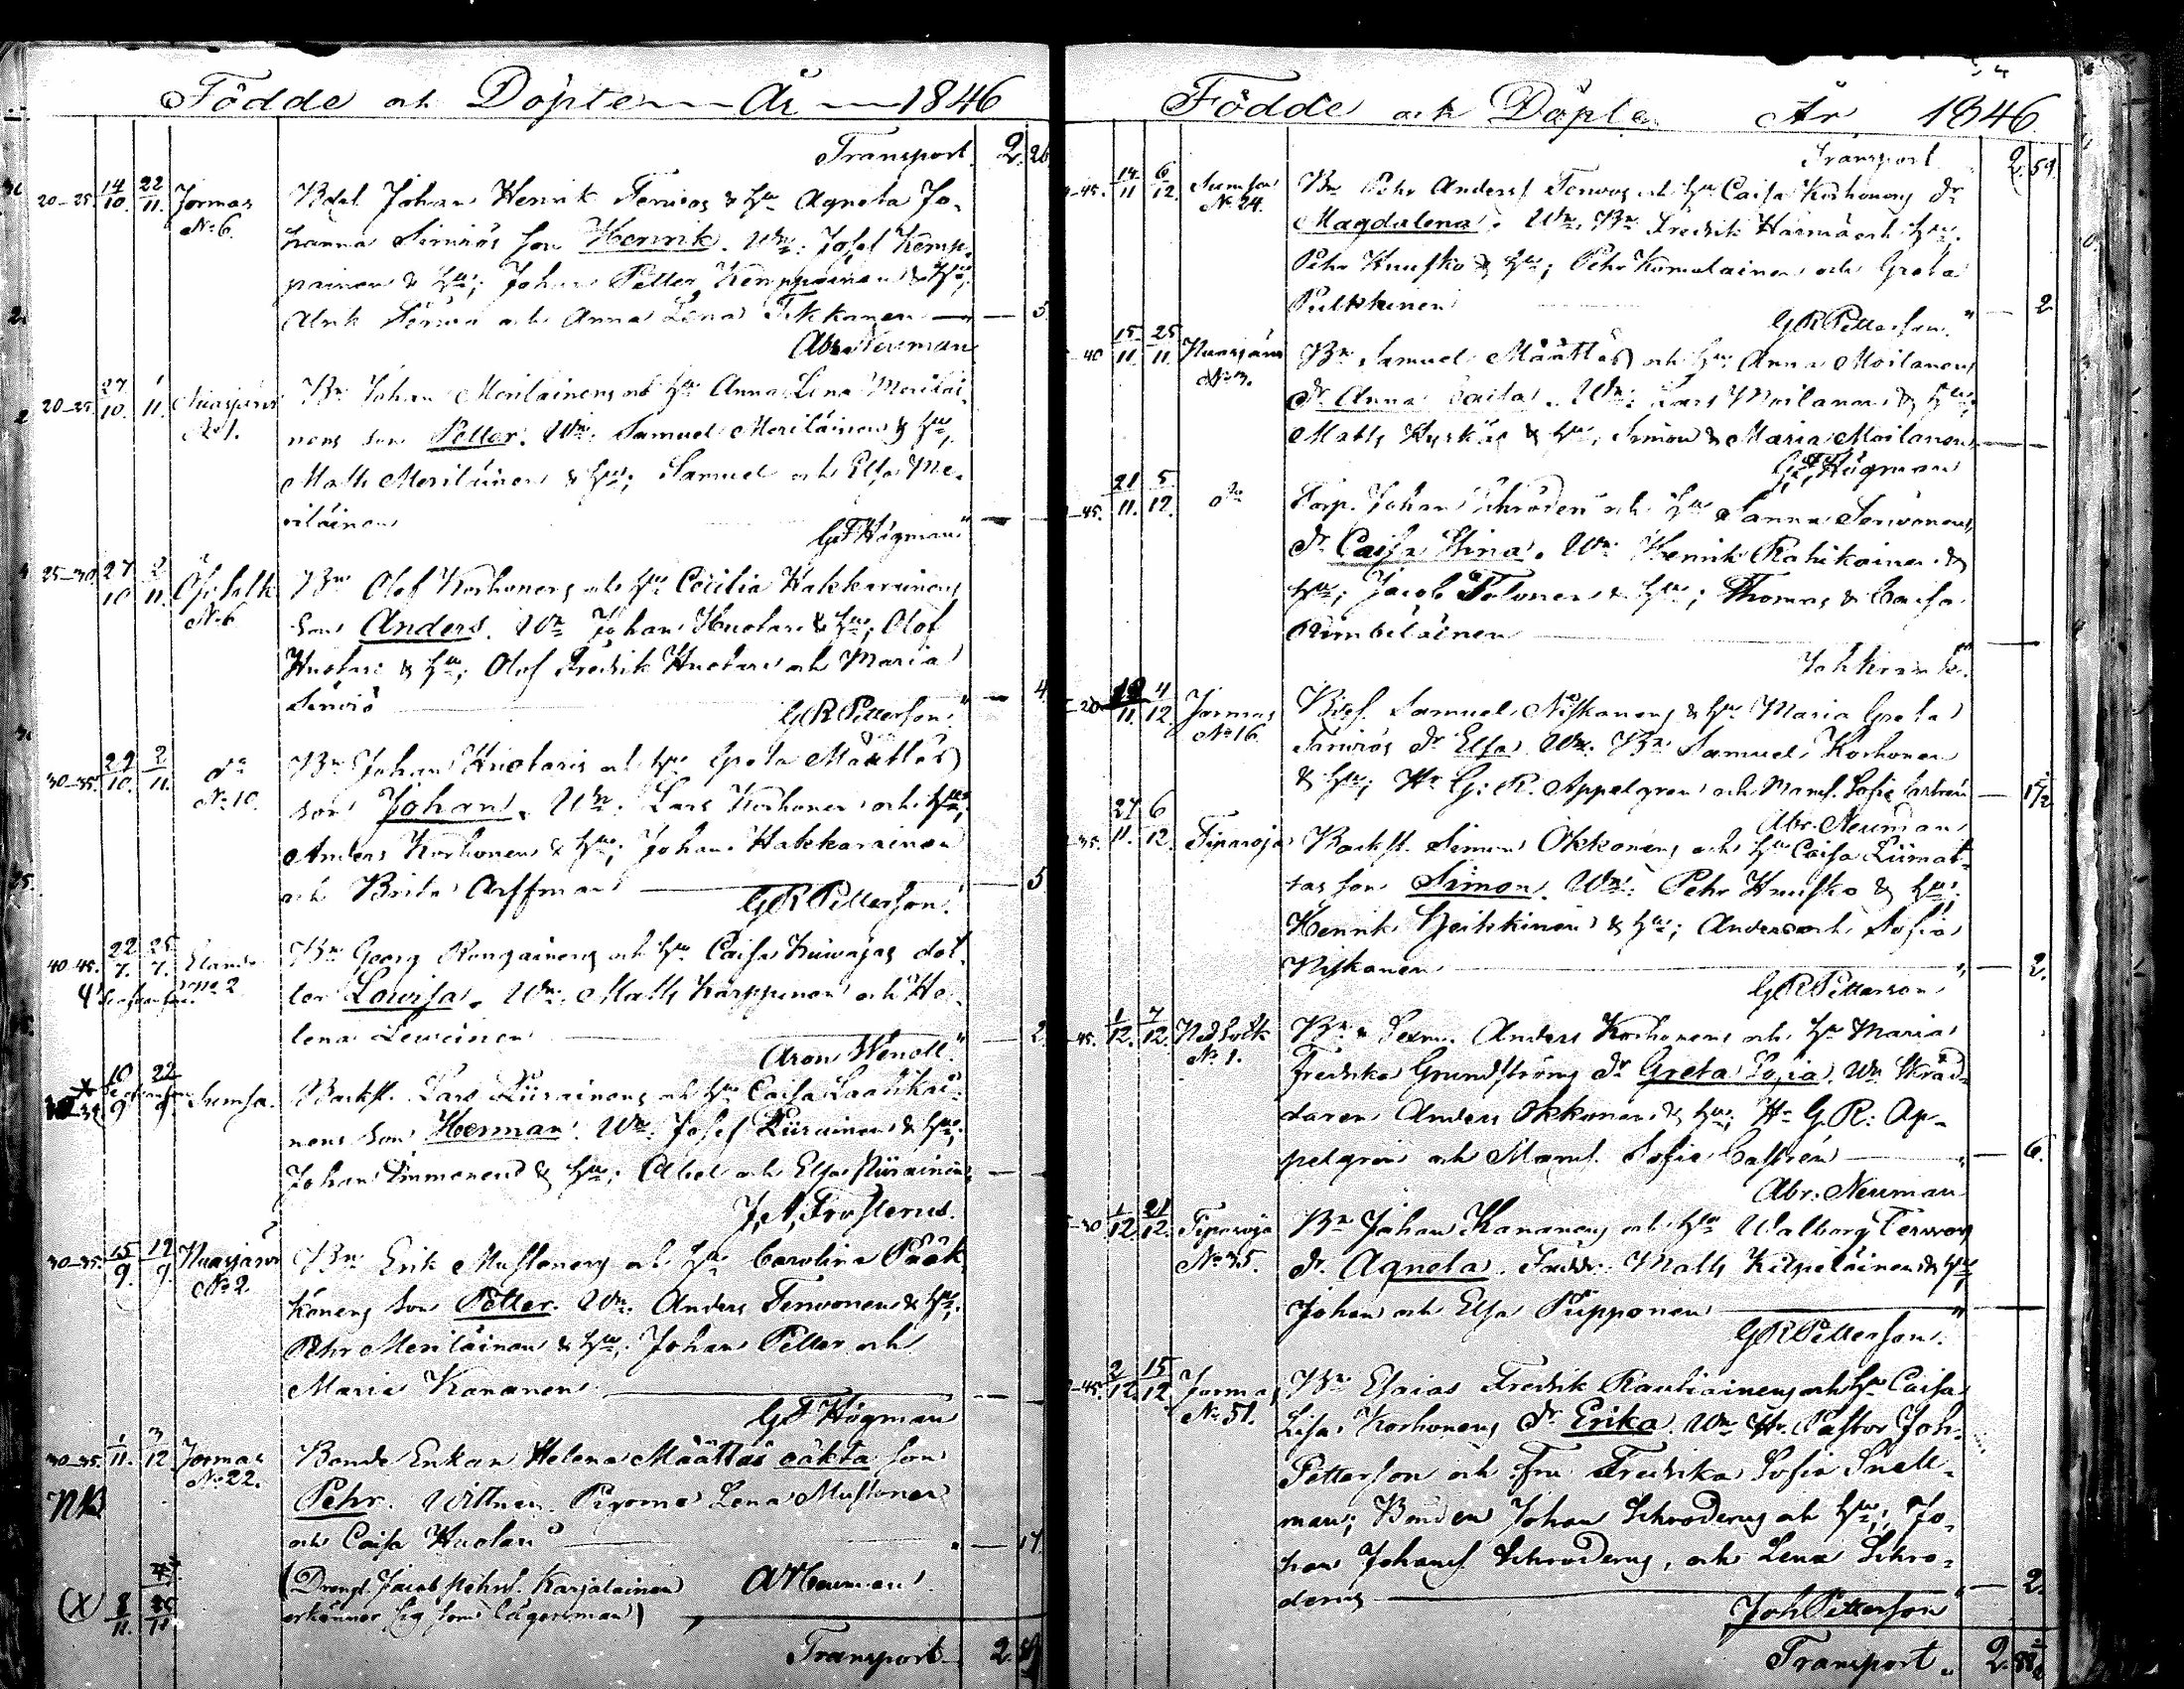 Födde och Döpte År 1846
Transport 2. 26
20-25. 14/10. 22/11. Jormas Bdsl. Johan Henrik Terwos & hu Agneta Jo-
No 6. hanna Servios son Henrik. Wn: Josef Kemp-
painen & hu; Johan Petter Kemppainen & hu;
och Anna Lena Tikkanen 5.
Abr. Neuman
20-25. 27/10. 1/11. Nuasjärvi Bn Johan Meriläinens och hu Anna Lena Meriläi-
No 1. nens son Petter. Wn: Samuel Meriläinen & hu;
Matts Meriläinen & hu; Samuel och Elsa Me-
riläinen
G F Högman
25-30. 27/10 2/11. Bn Olof Korhonens och hu Cecilia Hakkarainens
No 6 son Anders. Wn Johan Huotari & hu; Olof
Huotari & hu; Olof Fredrik Huotari och Maria
Serviö 4
G R Petterson.
30-35. 29/10. 2/11. do Bn Johan Huotaris och hu Greta Määttäs
No 10. son Johan. Wn: Lars Korhonen och hu;
Anders Korhonen & hu; Johan Hakkarainen
och Brita Arffman 5
G R Petterson.
40-45. 22/7. 25/7. Bn Georg Rongainens och hu Caisa Kuivajas dot-
No 2 ter Lowisa. Wn: Matts Karppinen och He-
lena Leweinen 2
Aron Wenell.
10/9 22/9 Sumsa. Backst. Lars Piirainens och hu Caisa Laatikai-
nens son Herman. Wn: Josef Piirainen & hu;
Johan Immonen & hu; Abel och Elsa Piirainen
J. A. Frosterus.
30-35. 15/9. 19/9. Nuasjärvi Bn Erik Mustonens och hu Carolina Pääk-
No 2. könens son Petter. Wn: Anders Tervonen & hu;
Pehr Meriläinen & hu; Johan Petter och
Maria Kananen
G F Högman
30-35. 1/11. 3/12 Jormas Bonde Enkan Helena Määttäs oäkta son
No 22.
NB Pehr. Wittnen. Pigorna Lena Mustonen
och Caisa Huotari 17.
(Drengl. Jacob Pehrs. Karjalainen A Neuman
(X) 8/11. erkänner sig som lägersman)
Transport 2. 59
Födde och Döpte År 1846.
Transport 2. 59
-45. 14/11 6/12. Sumsa Bn Pehr Anders Tervos och hu Caisa Korhonens dr
No 24. Magdalena. Wn. Bn Fredrik Härmä och hu;
Pehr Knuska & hu; Pehr Komulainen och Greta
Pulkkinen 2.
G R Petterson.
-40 15/11. 25/11. Nuasjärvi Bn Samuel Määttäs och hu Anna Moilanens
No 3. dr Anna Caisa. Wn: Lars Moilanen & hu;
Matts Kyrkäs & hu; Simon & Maria Moilanen
G F Högman
-45. 21/11. 5/12. do Torp. Johan Schröders och hu Sanna Servonens
dr Caisa Stina. Wn: Henrik Rahikainen &
hu; Jacob Tolonen & hu; Thomas & Caisa
Rimbiläinen
4/12. Jormas Samuel Niskanens & hu Maria Greta
No 16. Serviös dr Elsa. Wn: Bn Samuel Korhonen
& hu; Hr G: R. Appelgren och Mamsl. Sofie Castrén 1 1/2
Abr. Neuman
-35. 27/11. 6/12. Tiparoja Backst. Simon Okkonens och hu Caisa Liimat-
tas son Simon. Wn: Pehr Knuska & hu;
Henrik Heikkinen & hu; Anders och Sofia
Niskanen 2.
G R Petterson
-45. 1/12. 7/12. No 1. Bn & Sexm. Anders Korhonens och hu Maria
Fredrika Grundströms dr Greta Sofia. Wn Skräd-
daren Anders Okkonen & hu; Hr G. R: Ap-
pelgren och Mamsl. Sofia Castrén 6.
Abr. Neuman
-30 1/12. 21/12. Tiparoja Bn Johan Kananens och hu Walborg Tervos
No 35. dr Agneta. Faddr. Matts Kilpeläinen & hu
Johan och Elsa Piipponen
G R Petterson.
-45. 2/12. 15/12. Jormas Bn Esaias Fredrik Rautiainens och hu Caisa
No 51. Lisa Korhonens dr Erika. Wn Hr. Pastor Joh.
Petterson och Fru Fredrika Sofia Snell-
man; Bonden Johan Schroderus och hu; Jo-
han Johans. Schroderus, och Lena Schro-
derus 2.
Joh Petterson
Transport 2.